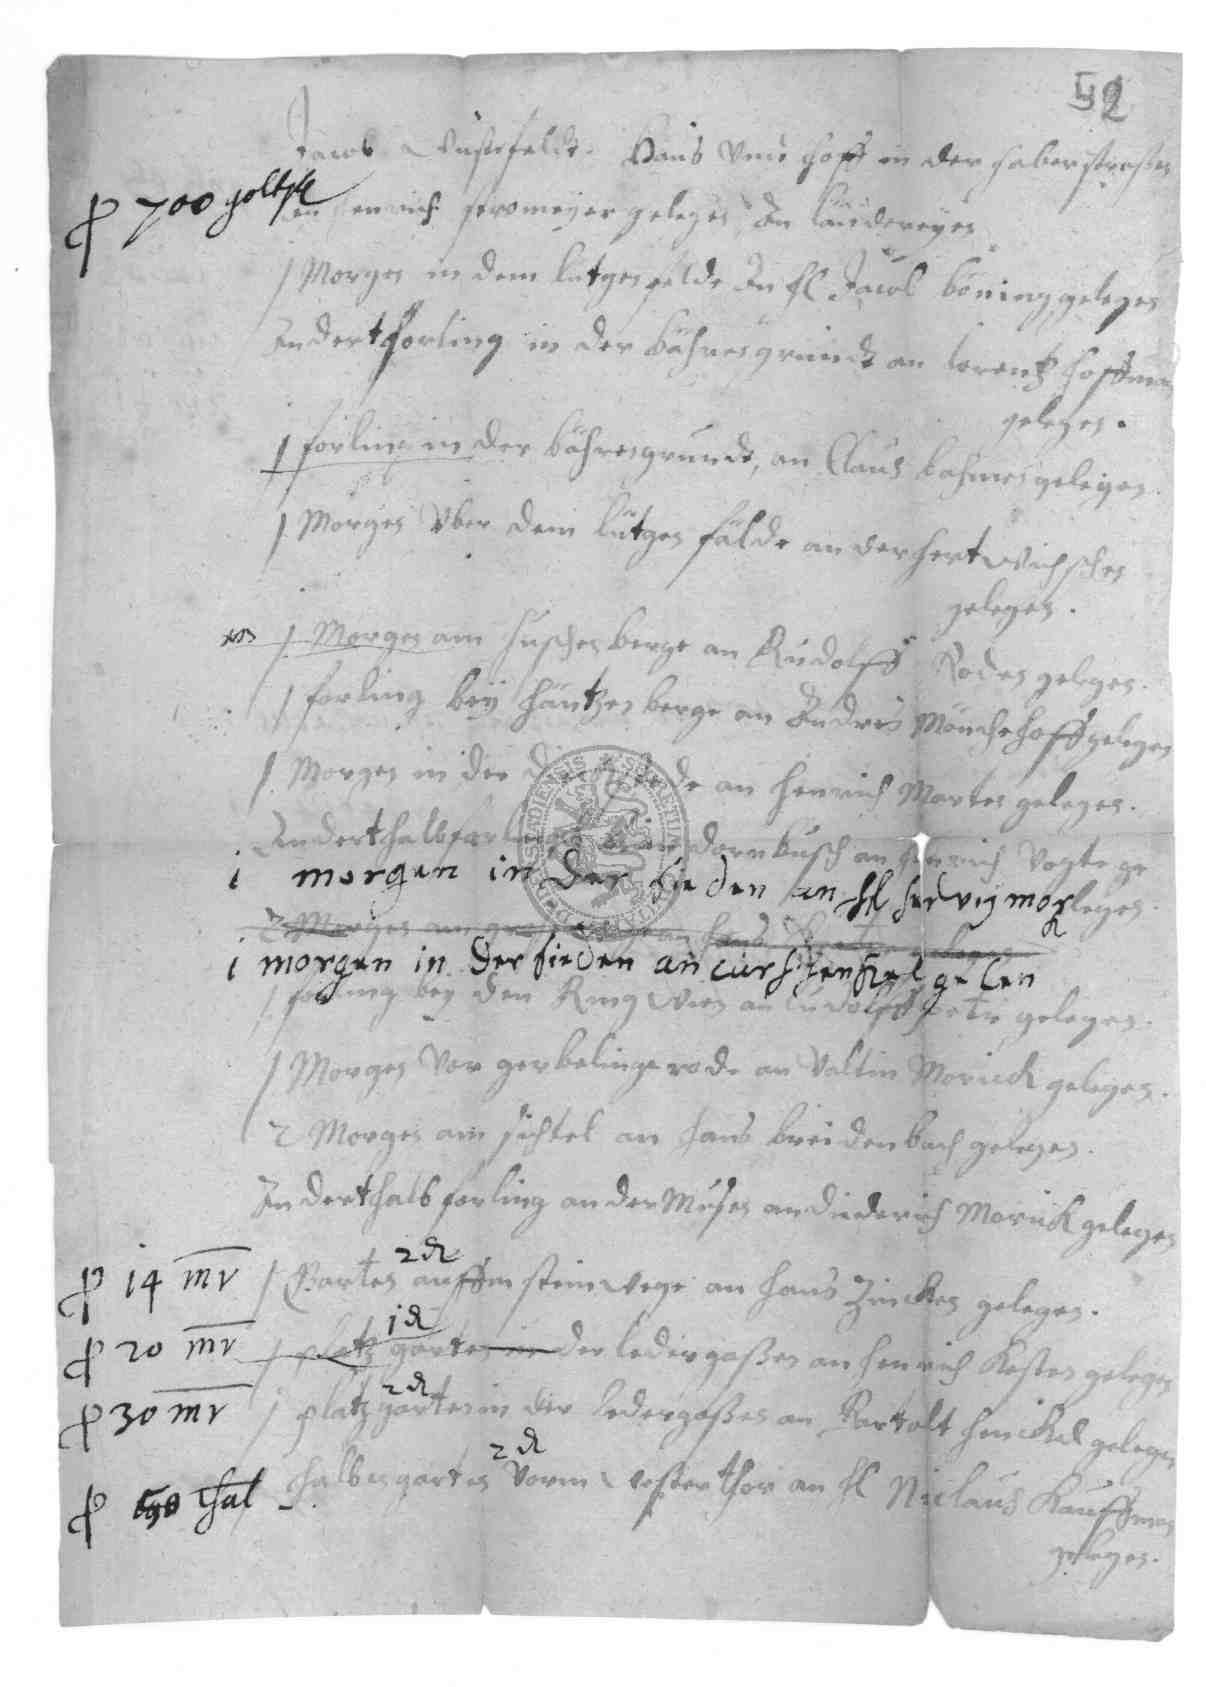 52
Jacob Wustefeldt. Haus vnd hoff in der haberstraßen
p 700 goltfl
an Henrich stromeyer gelegen An ländereyen
1 Morgen in dem lutgenfelde An H Jacob böning gelegen
Andert forling in der bähren grundt an lorentz hoffman
gelegen.
1 forling in der bährengrunde, an Claus gelegen
1 Morgen vber dem lütgen fälde an der hertwichschen
gelegen.
1 Morgen am berge an Rudolff Roden gelegen.
1 forling bey häntzen berge an Andres Mönchehoff gelegen
1 Morgen in der an henrich Marten gelegen.
Anderthalb forling dornbusch an henrich Vogte ge
legen.
i morgen in der sieden an H
2 Morgen am an hans
i morgen in der sieden an curt gelen
1 forling bey den Ring an Ludolff gelegen.
1 Morgen vor gerbelingerode an Valtin Morick gelegen.
2 Morgen am sichtel an hans breidenbach gelegen.
Anderthalb forling an der Musen an Diederich Morick gelegen
2 d
p 14 mr 1 Garten auffm steinwege an hans Zincken gelegen.
1 d
p 20 mr 1 platz garten in der ledergaßen an henrich Kesten gelegen
2 d
p 30 mr 1 platz garten in der ledergaßen an Bartolt henickel gelegen
2 d
p thal halben garten vorm westerthor an H Niclaus Kauffman
gelegen.